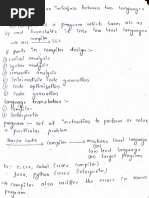 an interface between two languages
a program, which takes HLL as
i/p and translates it into low level language
HLL → compiler → LLL
6 parts in compiler design:-
① Lexical analysis
② Syntax analysis
③ Semantic analysis
④ Intermediate code generation
⑤ Code optimization
⑥ Code generation
Language translators:-
① Compiler
② Interpreter
Program:- Set of instructions to perform or solve
a particular problem
Source code → compiler → Machine level language
(or) low level language
(or) target program
Ex: C, C++, Cobol (uses compiler)
Java, Python (uses Interpreter)
→ Compiler also verifies the errors in some